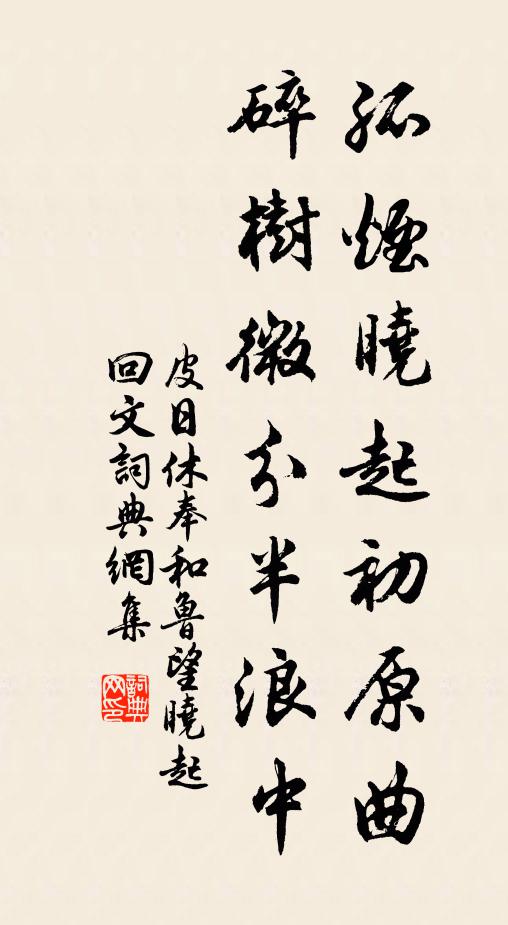 孤煙曉起初原曲
碎樹微分半浪中
皮日休奉和魯望曉起
回文詞典網集
詞典網印